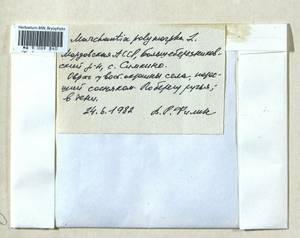 Herbarium MW, Bryophyta
Marchantia polymorpha L.
Мордовская АССР, Большеберезников-
ский р-н, с. Симкино.
Овраг у вост. окраины села, порос-
ший сосняком. По берегу ручья,
в тени.
24.6.1982 В.Р. Филин